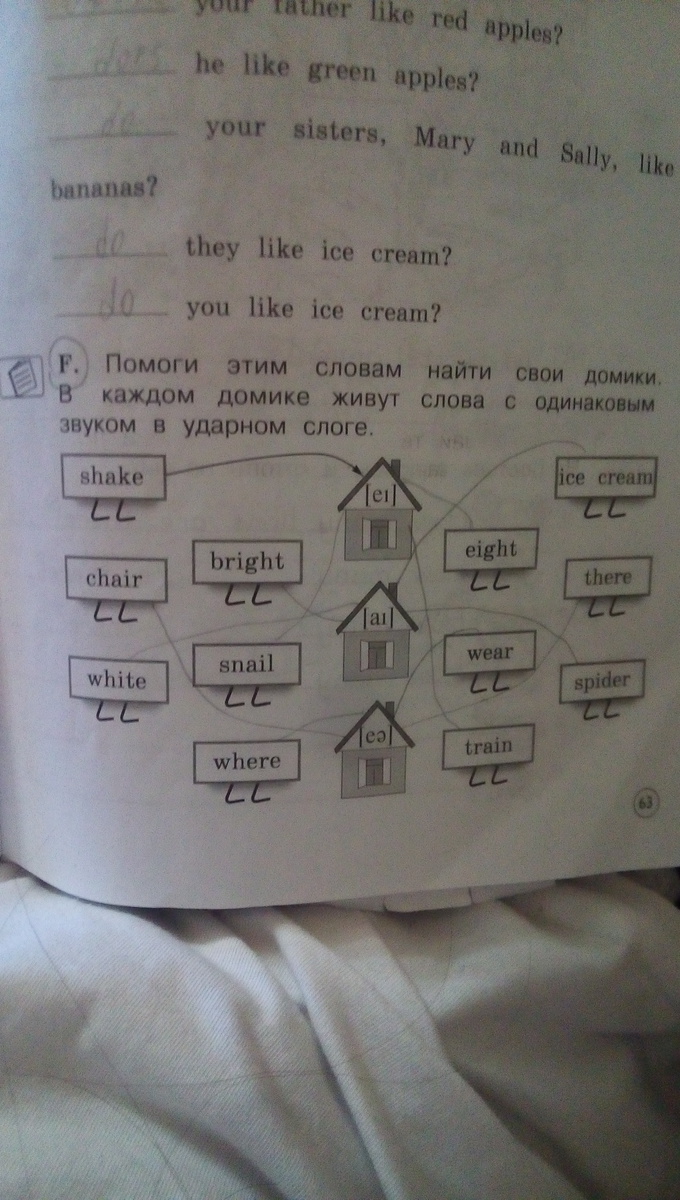 your father like red apples?
does he like green apples?
do your sisters, Mary and Sally, like
bananas?
do they like ice cream?
do you like ice cream?
F. Помоги этим словам найти свои домики.
В каждом домике живут слова с одинаковым
звуком в ударном слоге.
shake
[eɪ]
ice cream
bright
eight
chair
there
[aɪ]
snail
wear
white
spider
where
[eə]
train
63